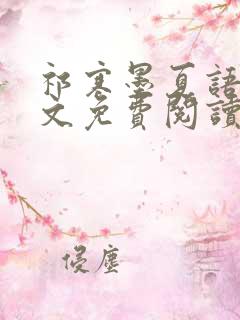 祁寒墨夏語
文免費閱讀
侵塵